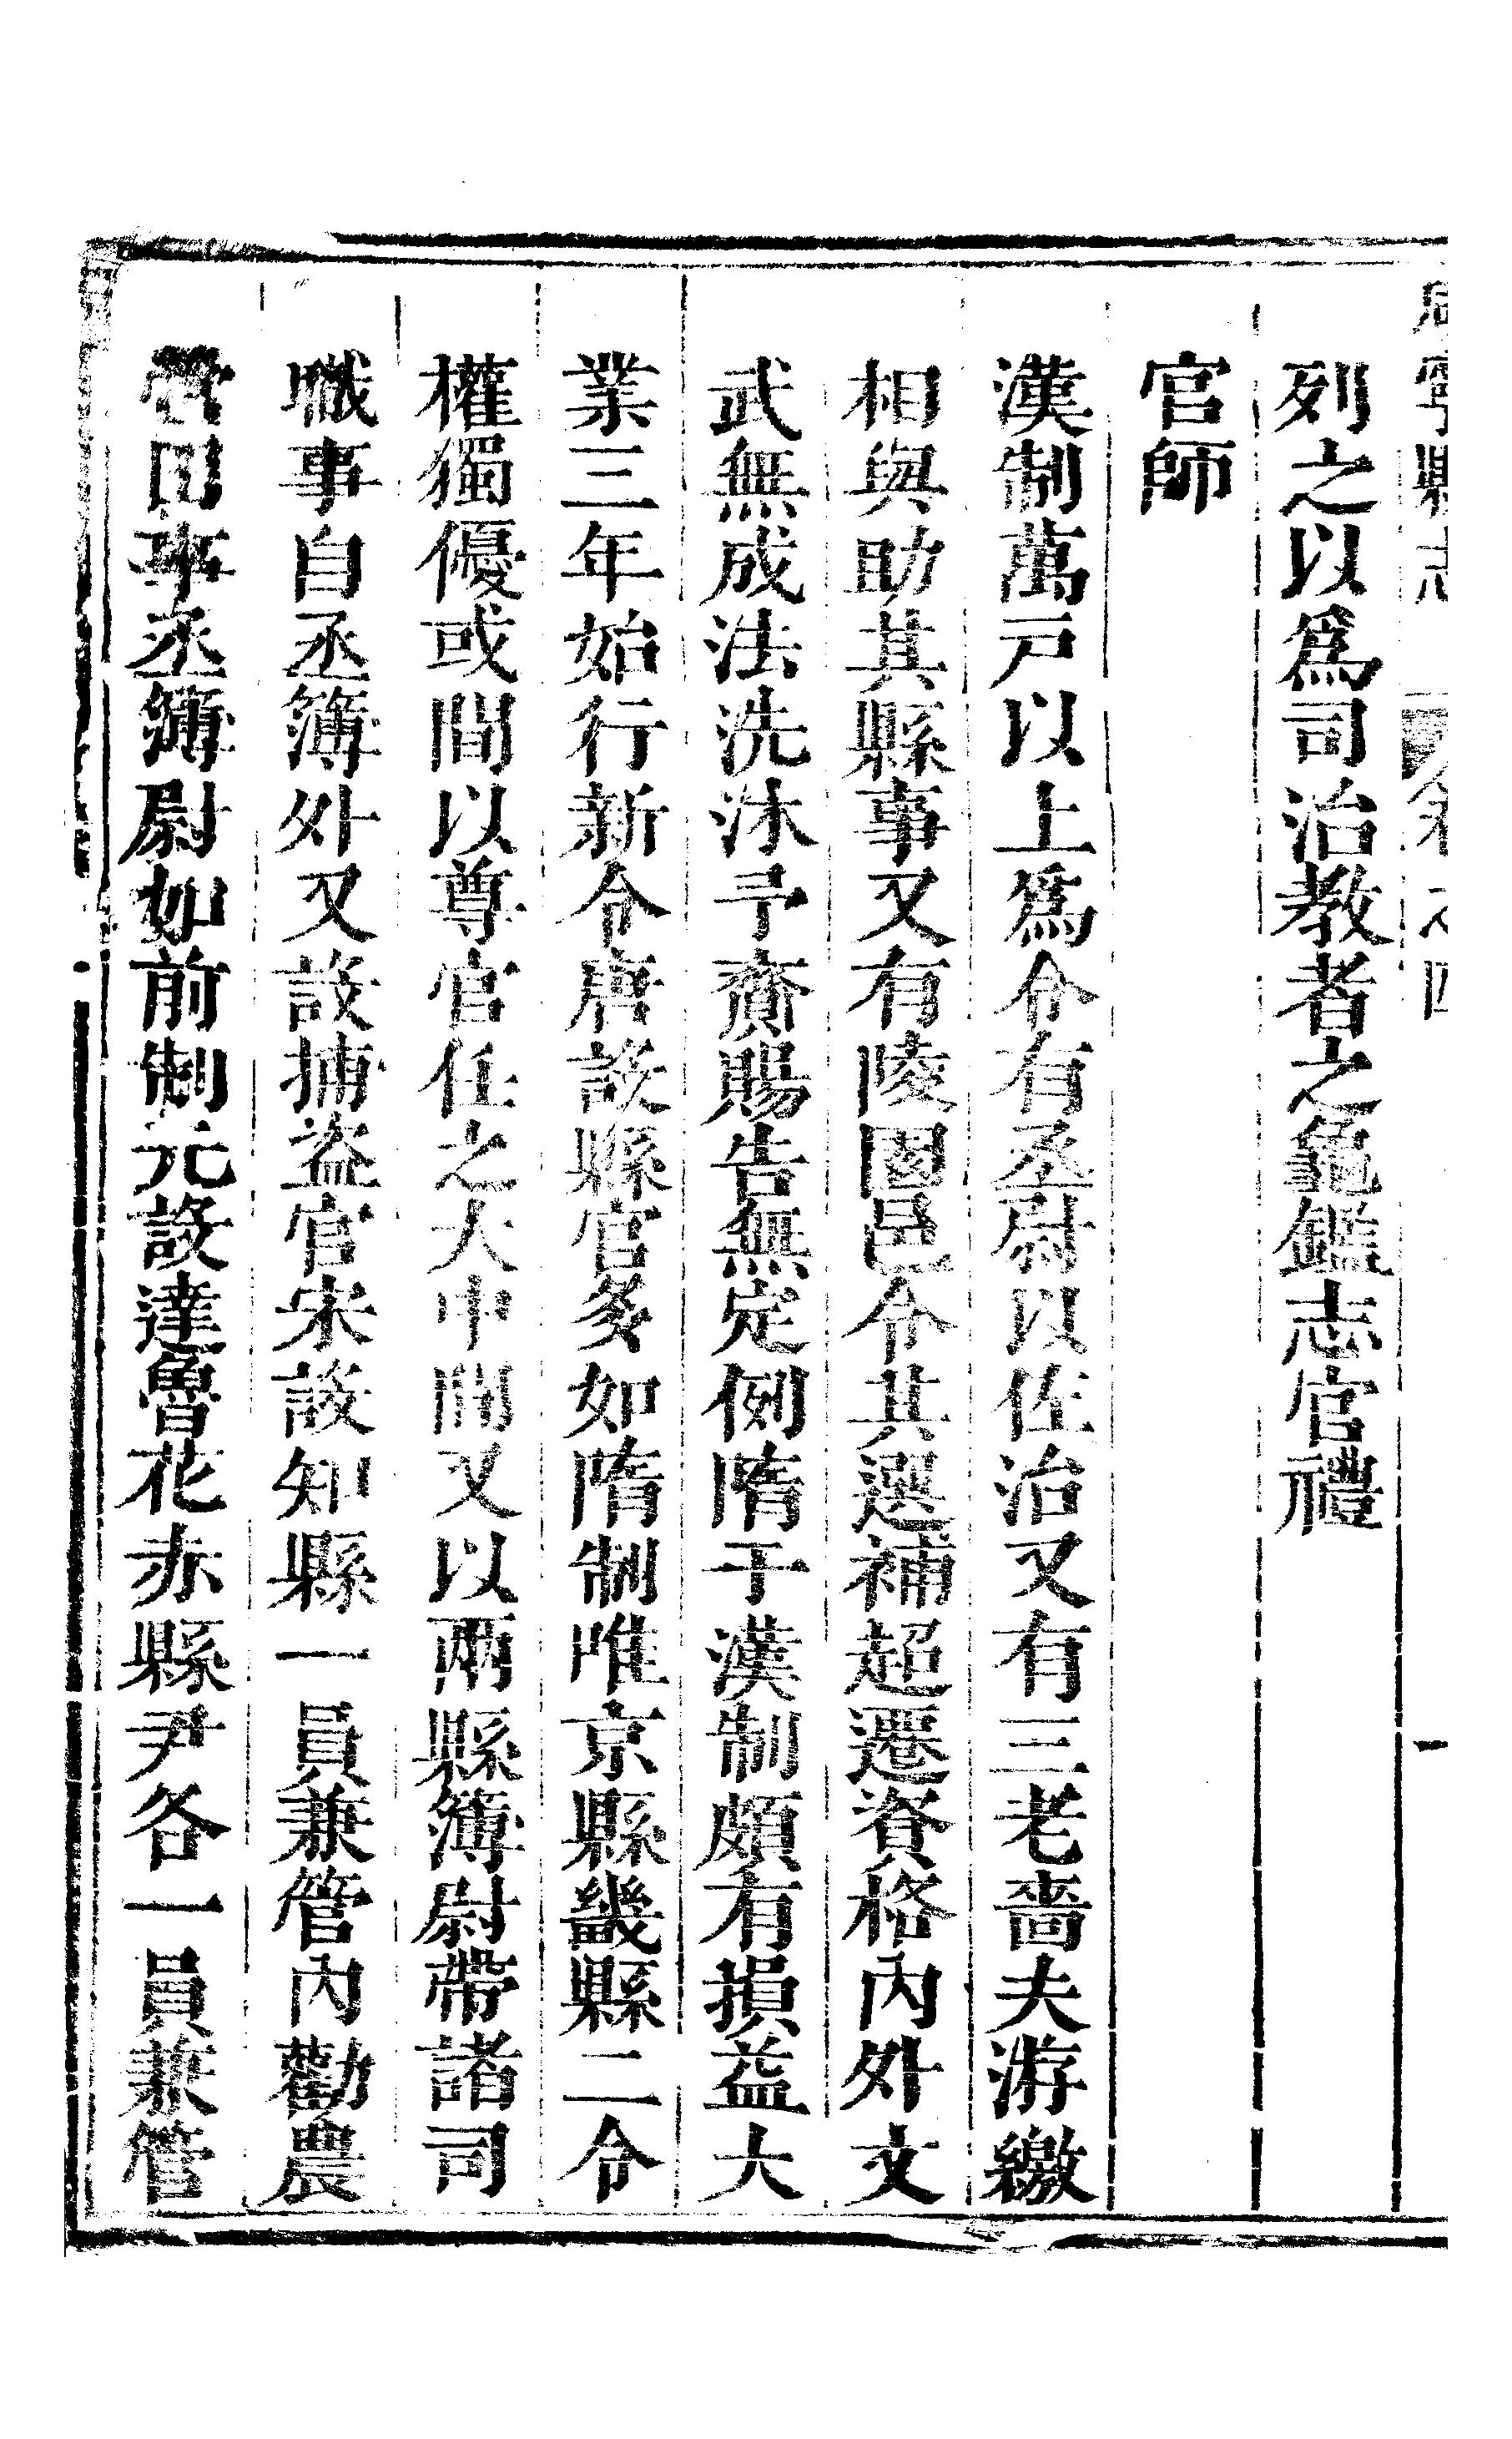 寧縣志 卷之四 一
列之以爲司治教者之龜鑑志官禮
官師
漢制萬戸以上爲令有丞尉以佐治又有三老嗇夫游繳
相與助其縣事又有陵園邑令其選補超遷資格內外文
武無成法洗沐予賚賜告無定例隋于漢制頗有損益大
業三年始行新令唐設縣官多如隋制唯京縣畿縣二令
權獨優或間以尊官任之大中間又以兩縣簿尉帶諸司
職事自丞簿外又設捕盜官宋設知縣一員兼管內勸農
營田事丞簿尉如前制元設達魯花赤縣尹各一員兼管